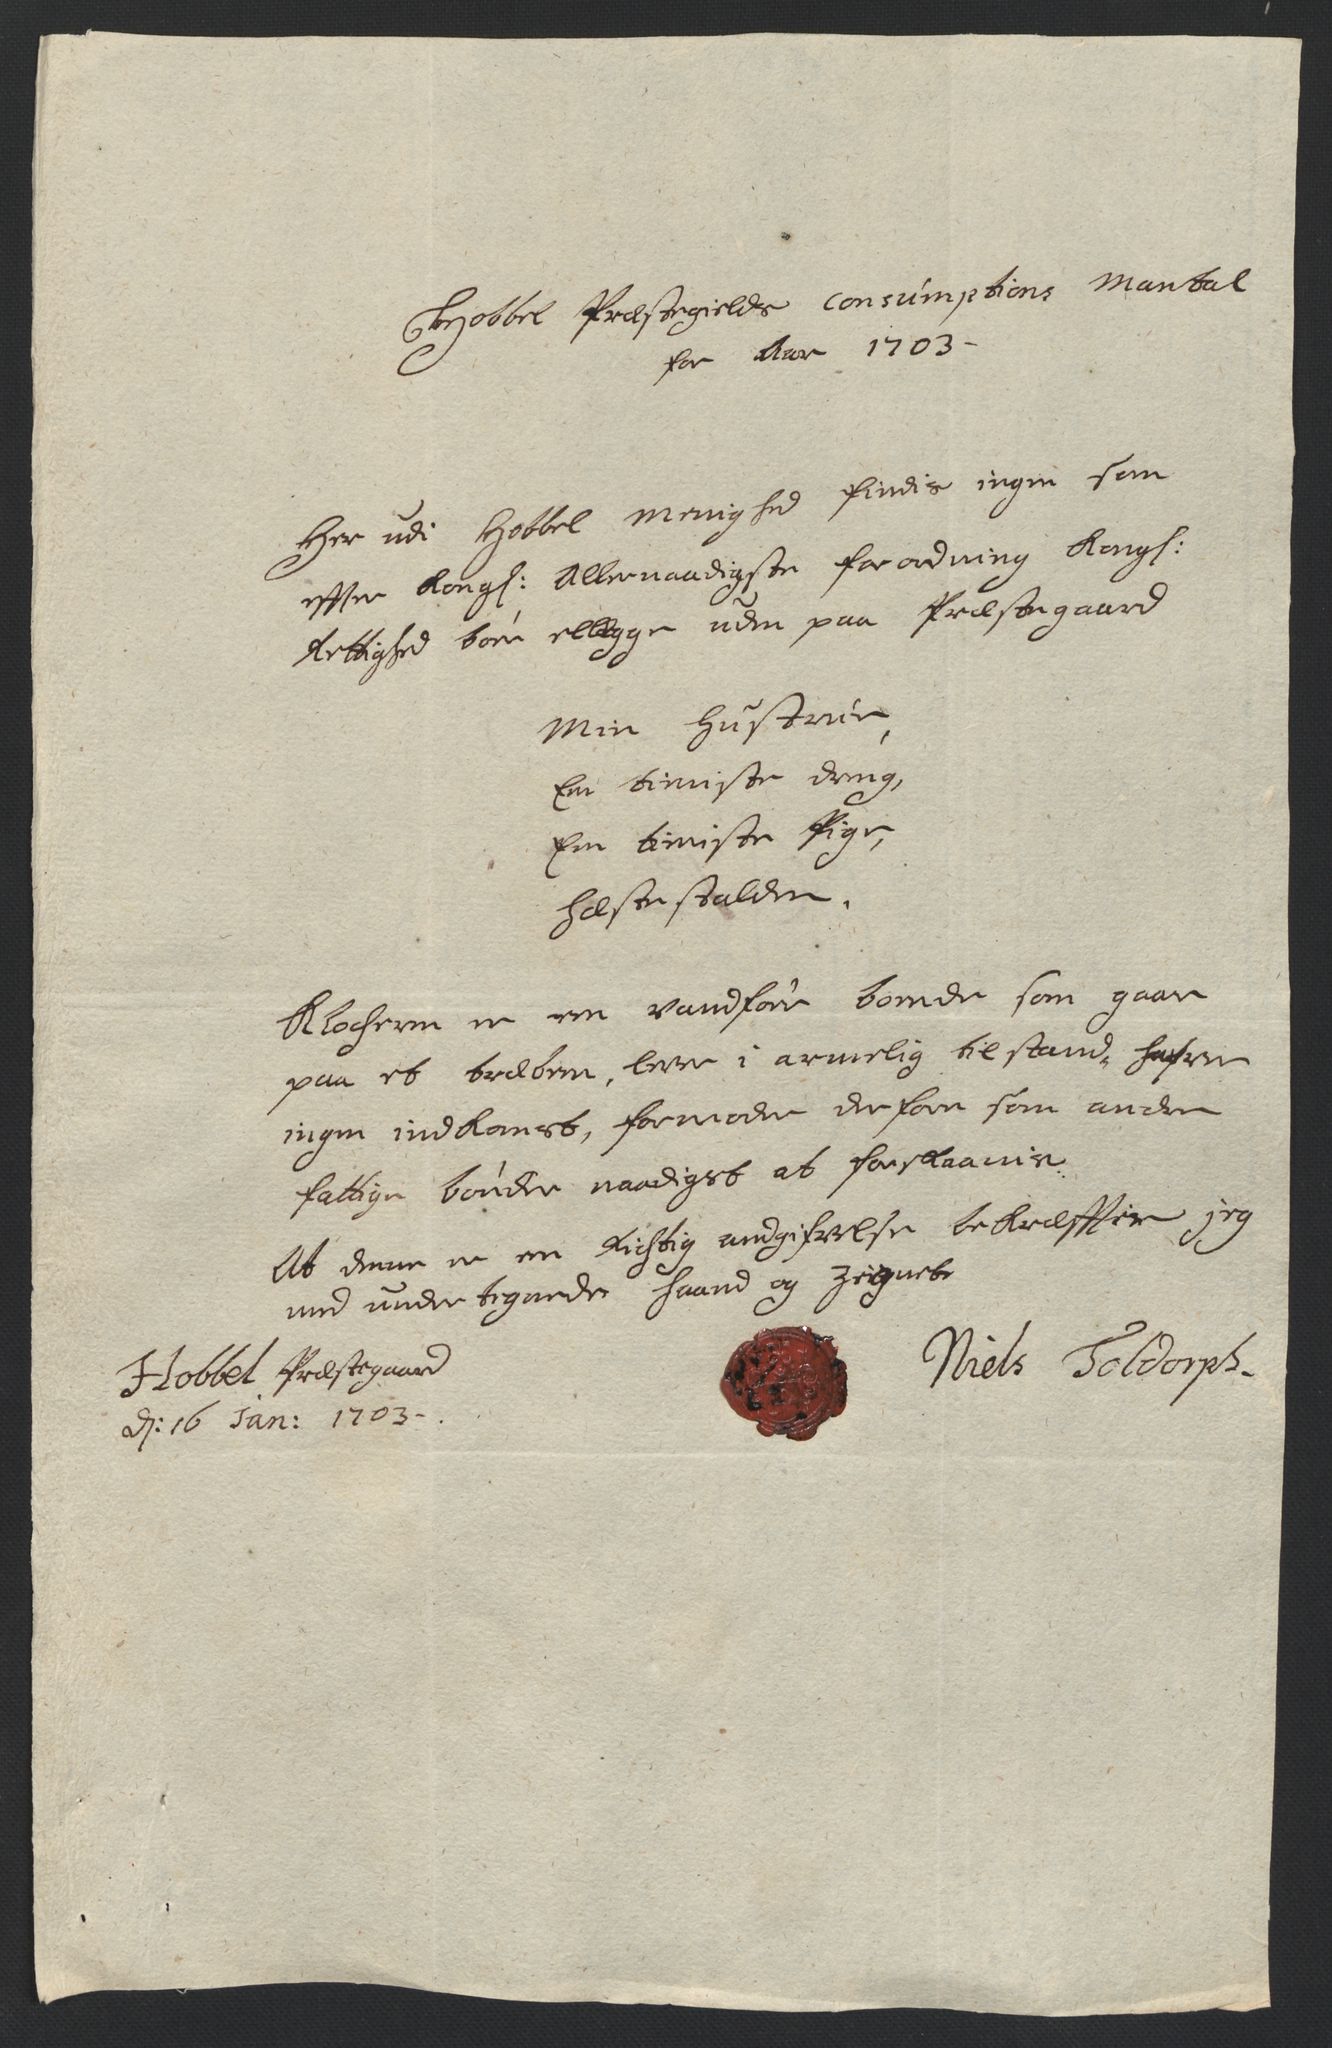 Hobbel Præstegields Consumptions Mantal
for Aar 1703-
Her udi Hobbel Menighed findis ingen som
effter Kongl: Allernaadigste forordning Kongl:
Rettighed bør uden paa Præstegaard
Min Hustrue,
En tieniste dreng,
En tieniste Pige,
Hæstestalden.
Klocheren er een vandför bonde som gaar
paa et træbeen, lever i armelig tilstand, hafver
ingen indkomst, formoder derfor som andre
fattige bönder naadigst at forskaanis.
At denne er en Rigtig angifvelse bekræffter jeg
med undertegnede haand og Zignete
Hobbel Præstegaard
d: 16 Jan: 1703-.
Niels Toldorph-